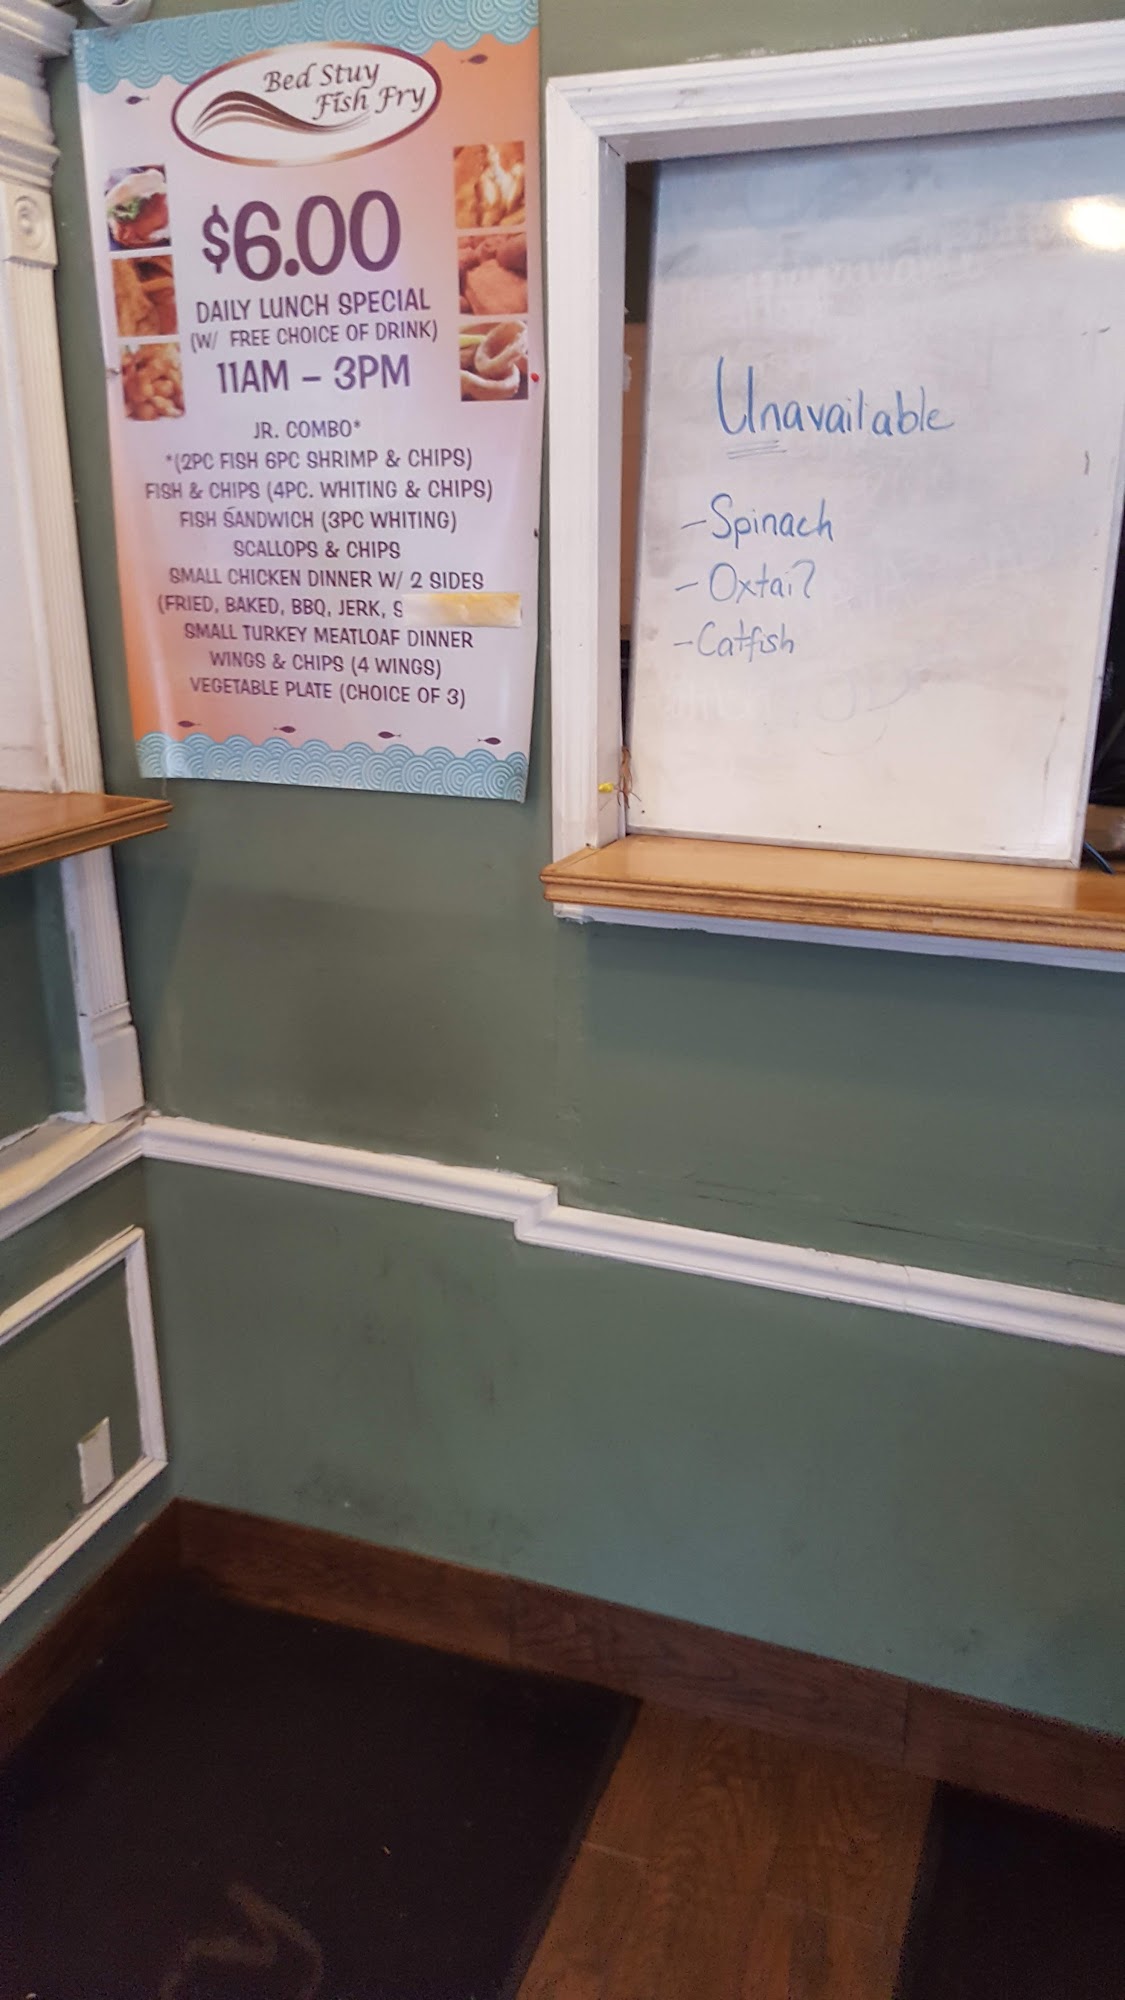 Bed Stuy
Fish Fry
$6.00
DAILY LUNCH SPECIAL
(W/ FREE CHOICE OF DRINK)
11AM – 3PM
JR. COMBO*
*(2PC FISH 6PC SHRIMP & CHIPS)
FISH & CHIPS (4PC. WHITING & CHIPS)
FISH SANDWICH (3PC WHITING)
SCALLOPS & CHIPS
SMALL CHICKEN DINNER W/ 2 SIDES
(FRIED, BAKED, BBQ, JERK,
SMALL TURKEY MEATLOAF DINNER
WINGS & CHIPS (4 WINGS)
VEGETABLE PLATE (CHOICE OF 3)
Unavailable
- Spinach
- Oxtail
- Catfish